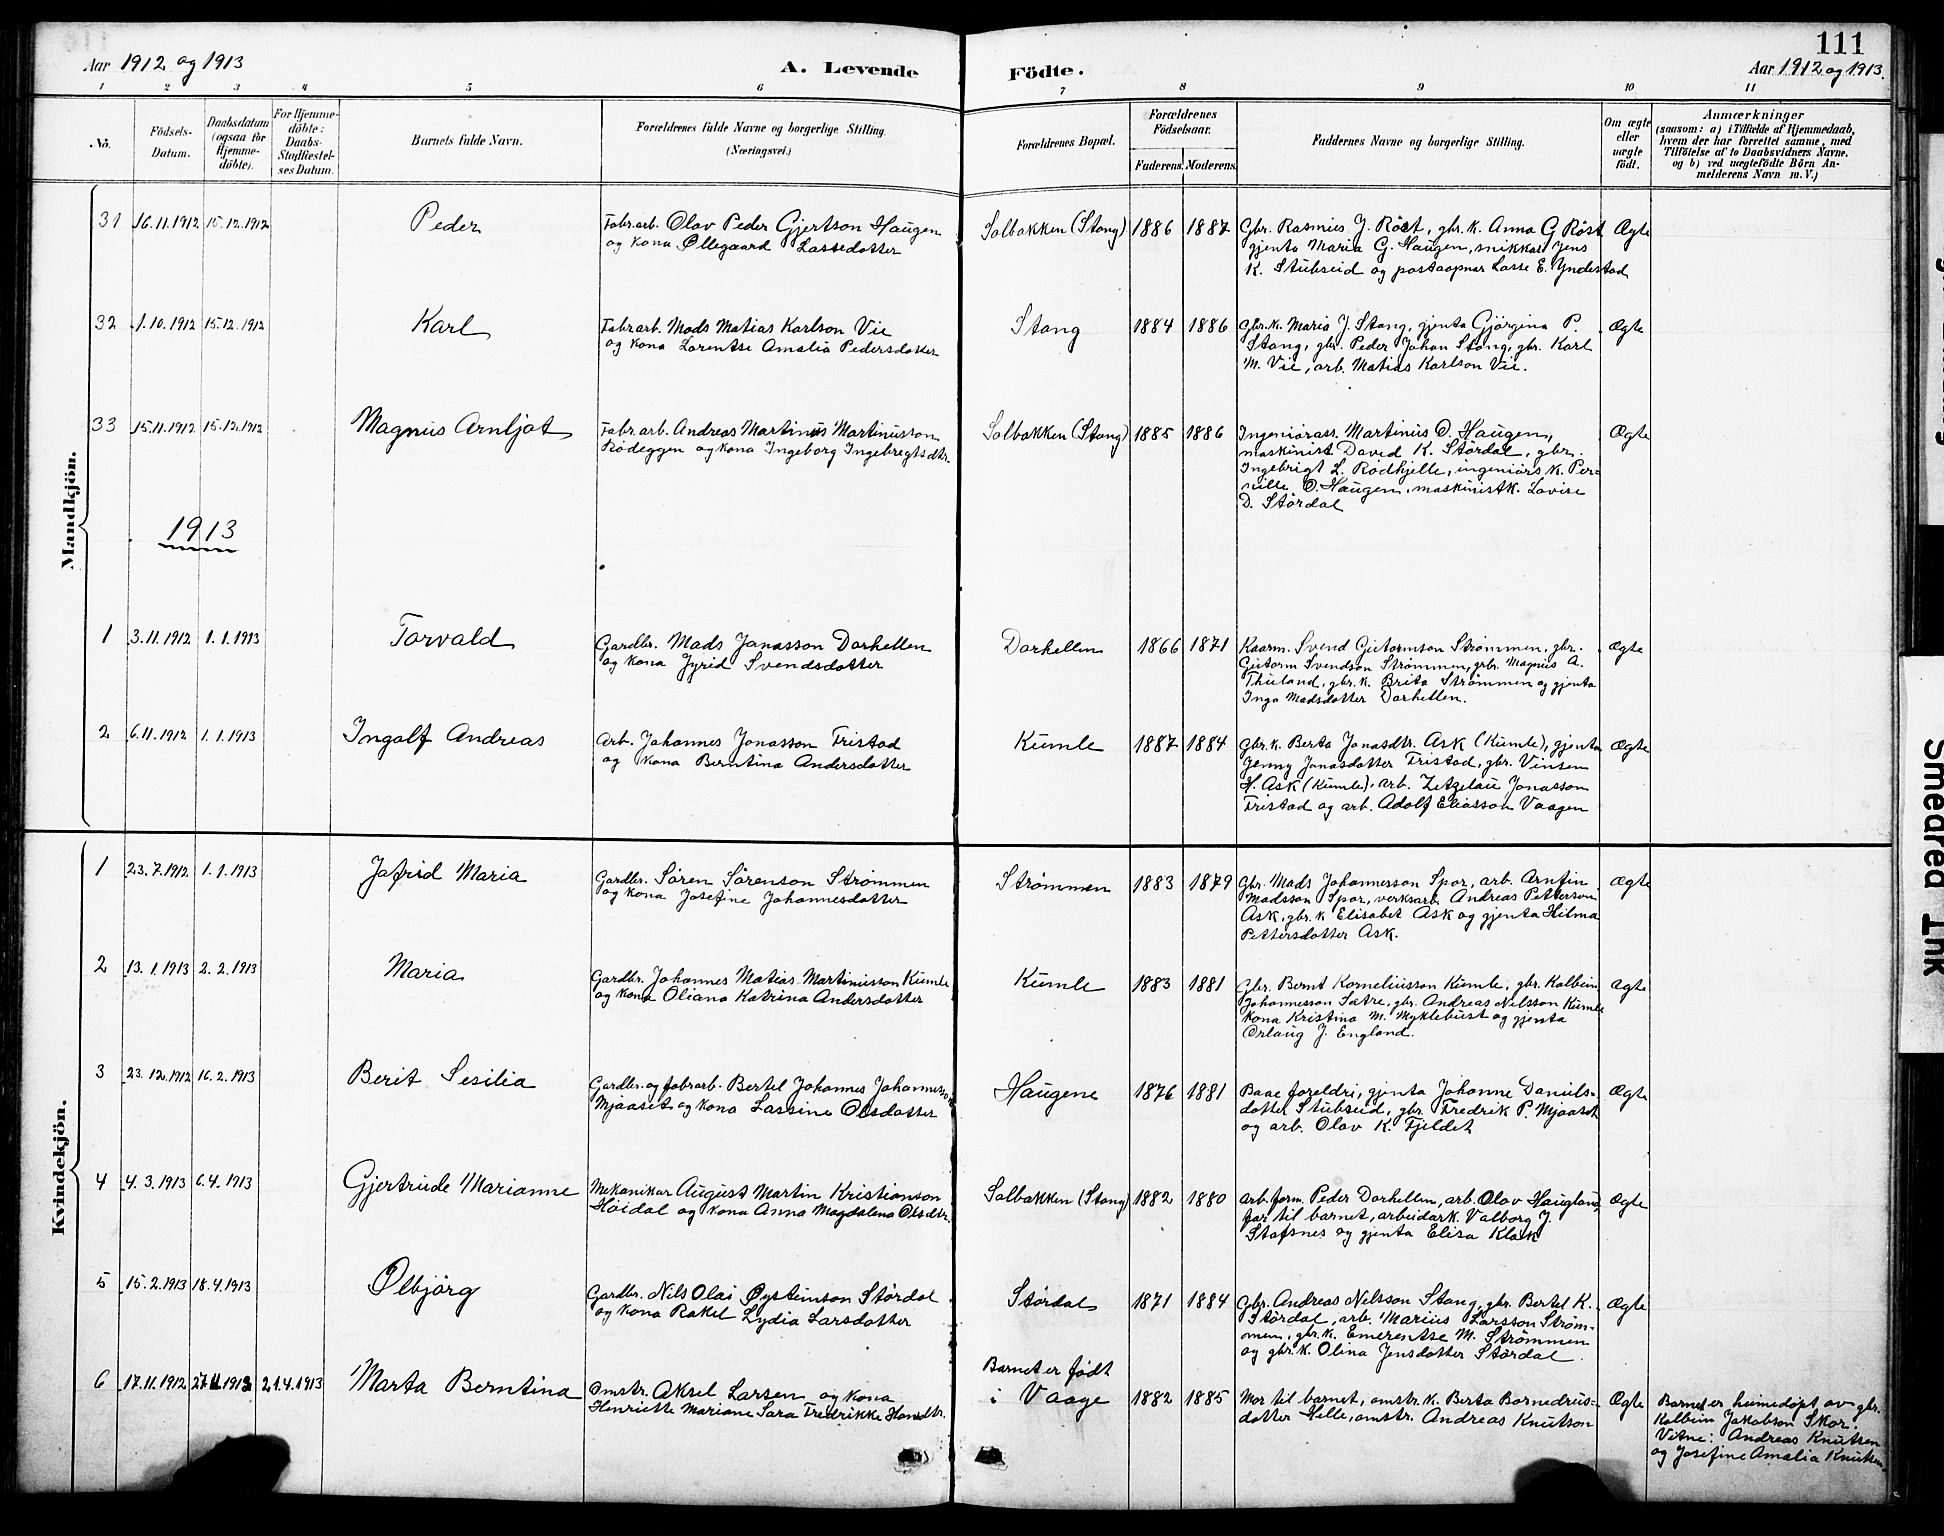 Aar 1912 og 1913
A. Levende
Födte.
111
Aar 1912 og 1913.
1 2 3 4 5 6 7 8 9 10 11
No.
Födsels-
Datum.
Daabsdatum
(ogsaa for
Hjemme-
döbte).
For Hjemme-
döbte:
Daabs-
Stadfæstel-
ses Datum.
Barnets fulde Navn.
Forældrenes fulde Navne og borgerlige Stilling.
(Næringsvei.)
Forældrenes Bopæl.
Forældrenes
Födselsaar.
Faderens. Moderens.
Faddernes Navne og borgerlige Stilling.
Om ægte
eller
uægte
födt.
Anmærkninger
(saasom: a) i Tilfælde af Hjemmedaab,
hvem der har forrettet samme, med
Tilföielse af to Daabsvidners Navne.
og b) ved uægtefödte Börn An-
melderens Navn m. V.)
Mandkjön.
31 16.11.1912 15.12.1912 Peder
Fabr.arb. Olav Peder Gjertson Haugen
og kona Øllegaard Lassedotter
Solbakken (Stang) 1886 1887
Gbr. Rasmus J. Röst, gbr. k. Anna G Röst
gjenta Maria G. Haugen, snikkar Jens
K. Stubseid og postaapnar Lasse E. Yndestad
Ægte
32 1.10.1912 15.12.1912 Karl
Fabr.arb. Mads Matias Karlson Vie
og kona Lorentse Amalia Pedersdotter
Stang 1884 1886
Gbr.k. Maria J. Stang, gjenta Gjörgina P.
Stang, gbr. Peder Johan Stang, gbr. Karl
M. Vie, arb. Matias Karlson Vie.
Ægte
33 15.11.1912 15.12.1912 Magnus Arnljot
Fabr.arb. Andreas Martinus Martinusson
Rödeggen og kona Ingeborg Ingebregtsdtr.
Solbakken (Stang) 1885 1886
Ingeniörass. Martinus O. Haugen,
maskinist David K. Stördal, gbr.
Ingebrigt L. Rödhjelle, ingeniörs k. Per-
nille O. Haugen, maskinistk. Lovise
D. Stördal
Ægte
1913
1 3.11.1912 1.1.1913 Torvald
Gardbr. Mads Jonasson Dorhellen
og kona Jyrid Svendsdotter
Dorhellen 1866 1871
Kaarm. Svend Gutormson Strømmen, gbr.
Gutorm Svendson Strømmen, gbr. Magnus A.
Thuland, gbr. k. Brita Strømmen og gjenta
Inga Madsdotter Dorhellen.
Ægte
2 6.11.1912 1.1.1913 Ingolf Andreas
Arb. Johannes Jonasson Tristad
og kona Berntina Andersdotter
Kumle 1887 1884
Gbr.k. Berta Jonasdtr. Ask (Kumle), gjenta
Jenny Jonasdotter Tristad, gbr. Vinsen
H. Ask (Kumle), arb. Zetzelau Jonasson
Tristad og arb. Adolf Eliasson Vaagen
Ægte
Kvindekjön.
1 23.7.1912 1.1.1913 Jafrid Maria
Gardbr. Søren Sørenson Strømmen
og kona Josefine Johannesdotter
Strømmen 1883 1879
Gbr. Mads Johannesson Spor, arb. Arnfin
Madsson Spor, verksarb. Andreas Petterson
Ask, gbr. k Elisabet Ask og gjenta Hilma
Pettersdotter Ask.
Ægte
2 13.1.1913 2.2.1913 Maria
Gardbr. Johannes Matias Martinusson Kumle
og kona Oliana Katrina Andersdotter
Kumle 1883 1881
Gbr. Bernt Korneliusson Kumle, gbr. Kolbein
Johannesson Sætre, gbr. Andreas Nelsson Kumle
kona Kristina M. Myklebust og gjenta
Orlaug J. England.
Ægte
3 23.12.1912 16.2.1913 Berit Sesilia
Gardbr. og fabr.arb. Bertel Johannes Johannesson
Mjaaset og kona Lassine Olsdotter
Haugene 1876 1881
Baae foreldri, gjenta Johanne Daniels-
dotter Stubseid, gbr. Fredrik P. Mjaaset
og arb. Olav K. Fjeldet
Ægte
4 4.3.1913 6.4.1913 Gjertrude Marianne
Mekanikar August Martin Kristianson
Höidal og kona Anna Magdalena Olsdtr.
Solbakken (Stang) 1882 1880
Arb.form. Peder Dorhellen, arb. Olav Haugland,
far til barnet, arbeidark. Valborg J.
Stafsnes og gjenta Elisa Klak
Ægte
5 15.2.1913 18.4.1913 Ølbjörg
Gardbr. Nils Olai Øysteinson Stördal
og kona Rakel Lydia Larsdotter
Stördal 1871 1884
Gbr. Andreas Nelsson Stang, gbr. Bertel K.
Stördal, arb. Marius Larsson Strøm-
men, gbr. k. Emerentse M. Strømmen
og gbr. k. Olina Jensdotter Stördal
Ægte
6 17.11.1912 27.11.1912 21.4.1913 Marta Berntina
Omstr. Aksel Larsen og kona
Henriette Mariane Sara Fredrikke Hansdtr.
Barnet er födt
i Vaage 1882 1885
Mor til barnet, omstr. k. Berta Bornedrus-
dotter Hille, omstr. Andreas Knutson
Ægte
Barnet er heimedöpt av gbr.
Kolbein Jakobson Skor.
Vitne: Andreas Knutsen
og Josefine Amalia Knutsen.
Smeared Ink